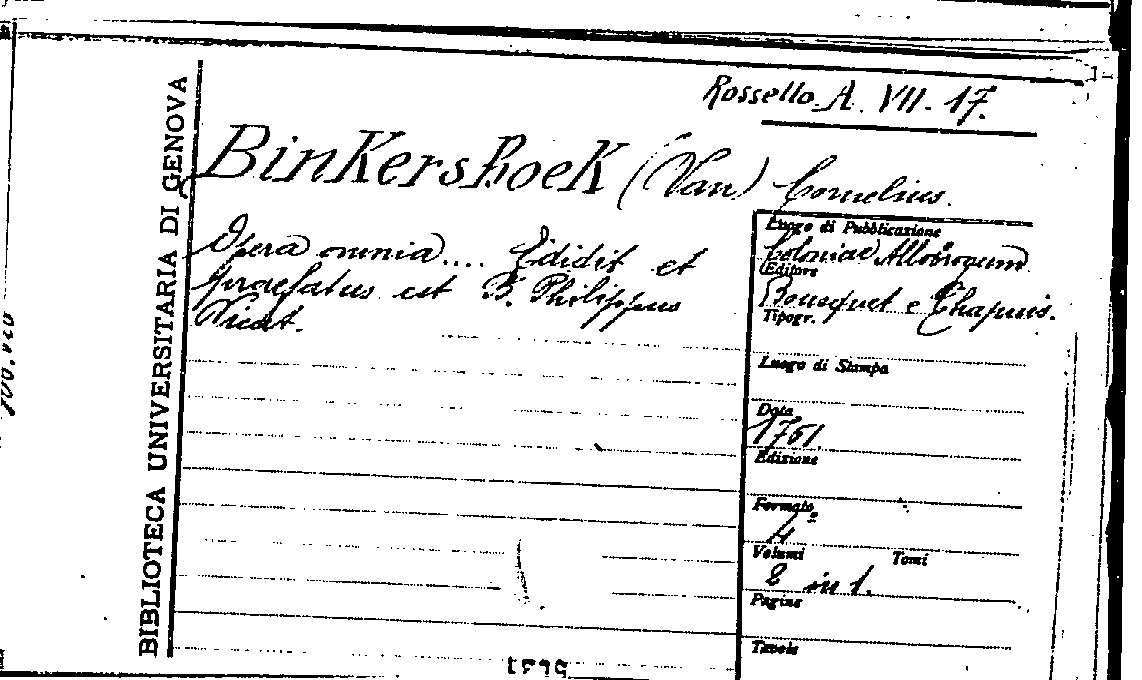 Rossello A. VII. 17.
BinKersHoeK (Van) Cornelius.
Opera omnia.... Edidit et
praefatus est B. Philippus
Vicat.
Luogo di Pubblicazione
Coloniae Allobrogum
Editore
Bousquet e Chapuis.
Tipogr.
Luogo di Stampa
Data
1761.
Edizione
Formato
4º
Volumi Tomi
2 in 1.
Pagine
Tavole
BIBLIOTECA UNIVERSITARIA DI GENOVA